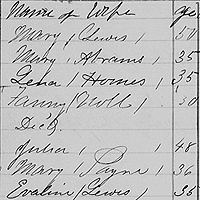 Name of Wife Age
Mary / Lewis / 37
Mary / Abrams / 35
Lena / Homes / 35
Fanny / Noll / 30
Dic'd.
Julia / 48
Mary / Payne / 36
Evaline / Lewis / 36